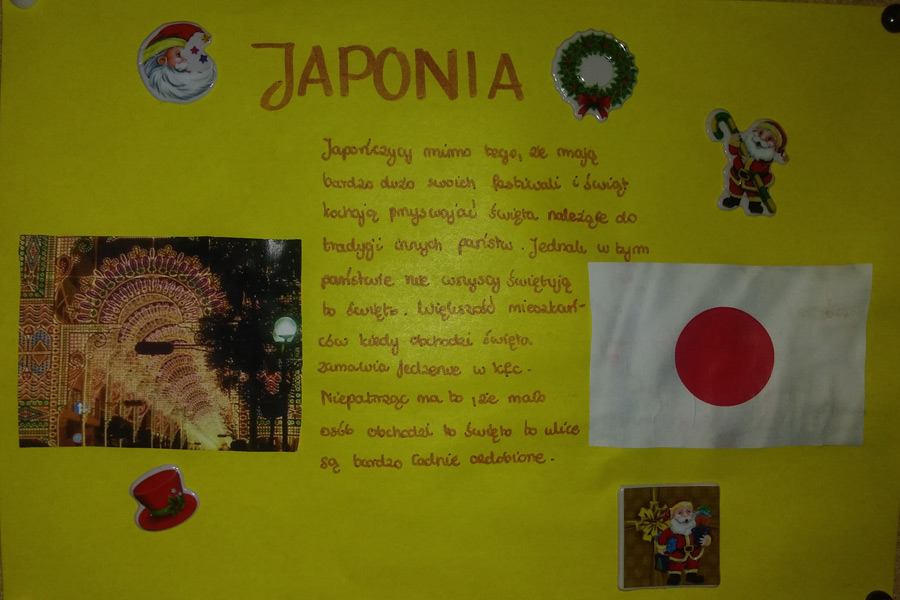 JAPONIA
Japończycy mimo tego, że mają
bardzo dużo swoich festiwali i świąt
kochają przyswajać święta należące do
tradycji innych państw. Jednak w tym
państwie nie wszyscy świętują
to święto. Większość mieszkań-
ców kiedy obchodzi święta
zamawia jedzenie w KFC.
Niepatrząc na to, że mało
osób obchodzi to święto to ulice
są bardzo ładnie ozdobione.